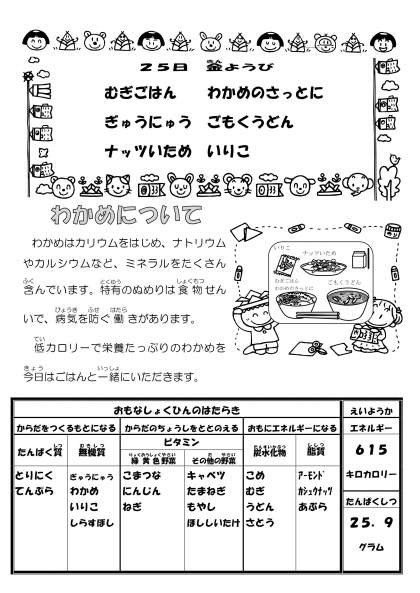 25日 金ようび
むぎごはん わかめのさっとに
ぎゅうにゅう ごもくうどん
ナッツいため いりこ
わかめについて
わかめはカリウムをはじめ、ナトリウム
やカルシウムなど、ミネラルをたくさん
含んでいます。特有のぬめりは食物せん
いで、病気を防ぐ働きがあります。
低カロリーで栄養たっぷりのわかめを
今日はごはんと一緒にいただきます。
いりこ
ナッツいため
むぎごはん
わかめのさっとに
ごもくうどん
おもなしょくひんのはたらき
えいようか
からだをつくるもとになる からだのちょうしをととのえる おもにエネルギーになる
エネルギー
たんぱく質 無機質 ビタミン 炭水化物 脂質
緑黄色野菜 その他の野菜
615
キロカロリー
とりにく ぎゅうにゅう こまつな キャベツ こめ アーモンド
てんぷら わかめ にんじん たまねぎ むぎ カシュウナッツ
いりこ ねぎ もやし うどん あぶら
しらすぼし ほししいたけ さとう
たんぱくしつ
25.9
グラム